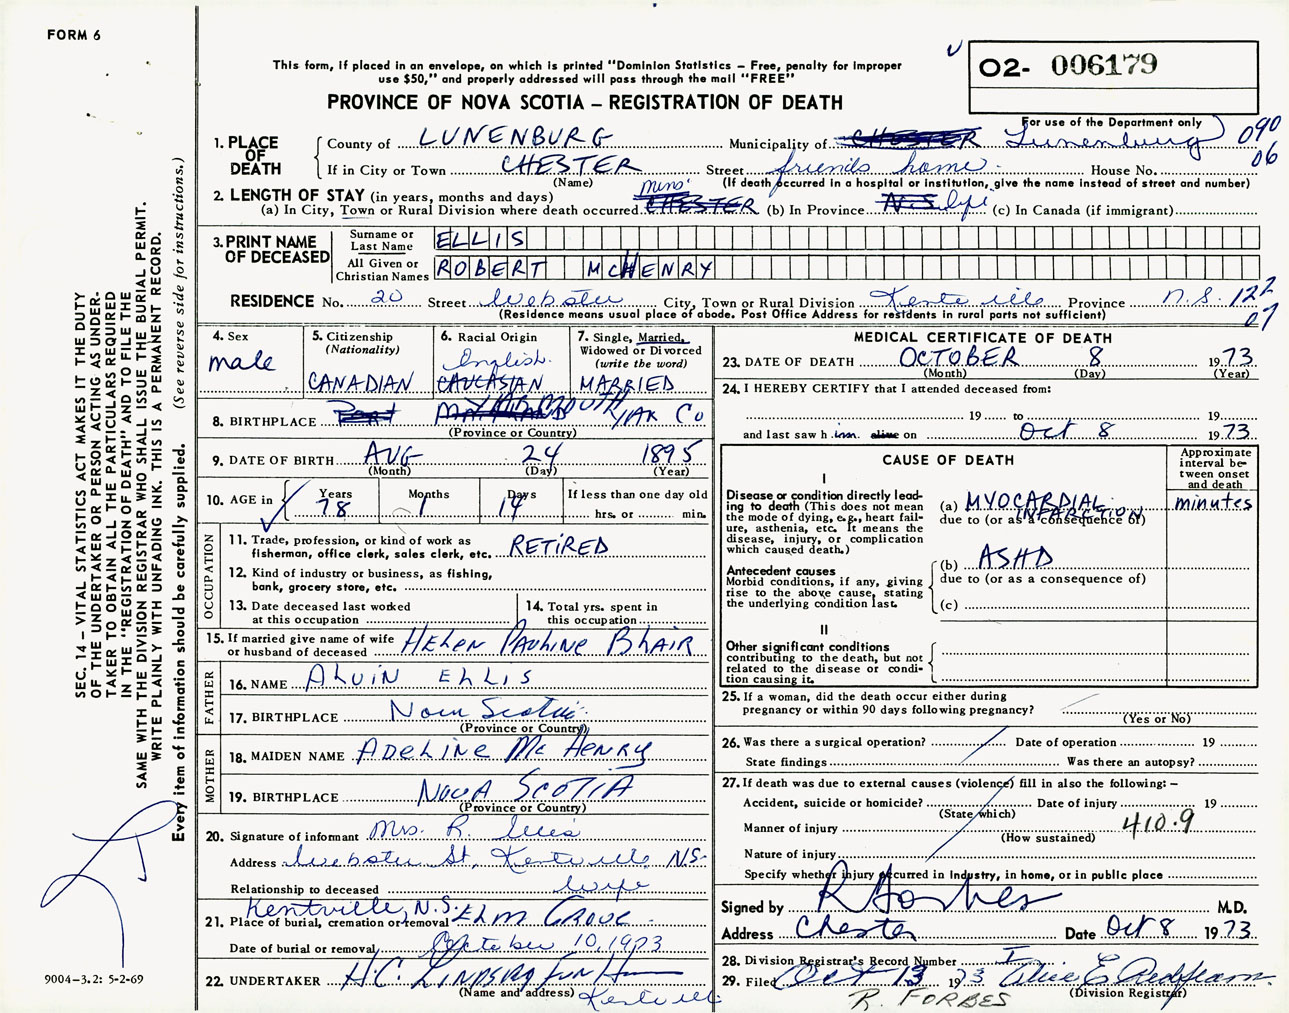 FORM 6
This form, if placed in an envelope, on which is printed "Dominion Statistics – Free, penalty for improper
use $50," and properly addressed will pass through the mail "FREE"
PROVINCE OF NOVA SCOTIA – REGISTRATION OF DEATH
O2- 006179
For use of the Department only
090
06
1. PLACE OF DEATH
County of LUNENBURG Municipality of CHESTER Lunenburg
If in City or Town CHESTER Street friends home House No.
(Name) (If death occurred in a hospital or institution, give the name instead of street and number)
2. LENGTH OF STAY (in years, months and days) mins
(a) In City, Town or Rural Division where death occurred CHESTER (b) In Province N.S. life (c) In Canada (if immigrant)
3. PRINT NAME OF DECEASED
Surname or Last Name ELLIS
All Given or Christian Names ROBERT MCHENRY
RESIDENCE No. 20 Street Webster City, Town or Rural Division Kentville Province N.S. 122
07
(Residence means usual place of abode. Post Office Address for residents in rural parts not sufficient)
4. Sex
male
5. Citizenship
(Nationality)
CANADIAN
6. Racial Origin
English
CAUCASIAN
7. Single, Married,
Widowed or Divorced
(write the word)
MARRIED
8. BIRTHPLACE YARMOUTH YAR Co
(Province or Country)
9. DATE OF BIRTH AUG 24 1895
(Month) (Day) (Year)
10. AGE in Years 78 Months 1 Days 14 If less than one day old
hrs. or min.
OCCUPATION
11. Trade, profession, or kind of work as
fisherman, office clerk, sales clerk, etc. RETIRED
12. Kind of industry or business, as fishing,
bank, grocery store, etc.
13. Date deceased last worked
at this occupation
14. Total yrs. spent in
this occupation
15. If married give name of wife
or husband of deceased HELEN PAULINE BLAIR
FATHER
16. NAME ALVIN ELLIS
17. BIRTHPLACE Nova Scotia
(Province or Country)
MOTHER
18. MAIDEN NAME ADELINE MCHENRY
19. BIRTHPLACE NOVA SCOTIA
(Province or Country)
20. Signature of informant Mrs. R. Ellis
Address Webster St. Kentville N.S.
Relationship to deceased wife
Kentville, N.S.
21. Place of burial, cremation or removal ELM GROVE
Date of burial or removal October 10, 1973
22. UNDERTAKER H.C. LINDSAY FUN Home
(Name and address) Kentville
MEDICAL CERTIFICATE OF DEATH
23. DATE OF DEATH OCTOBER 8 1973
(Month) (Day) (Year)
24. I HEREBY CERTIFY that I attended deceased from:
19 to 19
and last saw him alive on Oct 8 1973
CAUSE OF DEATH
Approximate interval between onset and death
I
Disease or condition directly leading to death (This does not mean
the mode of dying, e.g., heart failure, asthenia, etc. It means the
disease, injury, or complication
which caused death.)
(a) MYOCARDIAL INFARCTION minutes
due to (or as a consequence of)
Antecedent causes
Morbid conditions, if any, giving
rise to the above cause, stating
the underlying condition last.
(b) ASHD
due to (or as a consequence of)
(c)
II
Other significant conditions
contributing to the death, but not
related to the disease or condition causing it.
25. If a woman, did the death occur either during
pregnancy or within 90 days following pregnancy?
(Yes or No)
26. Was there a surgical operation? Date of operation 19
State findings Was there an autopsy?
27. If death was due to external causes (violence) fill in also the following: –
Accident, suicide or homicide? Date of injury 19
(State which)
Manner of injury 410.9
(How sustained)
Nature of injury
Specify whether injury occurred in Industry, in home, or in public place
Signed by R Forbes M.D.
Address Chester Date Oct 8 1973
28. Division Registrar's Record Number
29. Filed Oct 13 1973
(Division Registrar)
R. FORBES
SEC. 14 – VITAL STATISTICS ACT MAKES IT THE DUTY
OF THE UNDERTAKER OR PERSON ACTING AS UNDER-
TAKER TO OBTAIN ALL THE PARTICULARS REQUIRED
IN THE "REGISTRATION OF DEATH" AND TO FILE THE
SAME WITH THE DIVISION REGISTRAR WHO SHALL ISSUE THE BURIAL PERMIT.
WRITE PLAINLY WITH UNFADING INK. THIS IS A PERMANENT RECORD.
Every item of information should be carefully supplied. (See reverse side for instructions.)
9004–3.2: 5-2-69